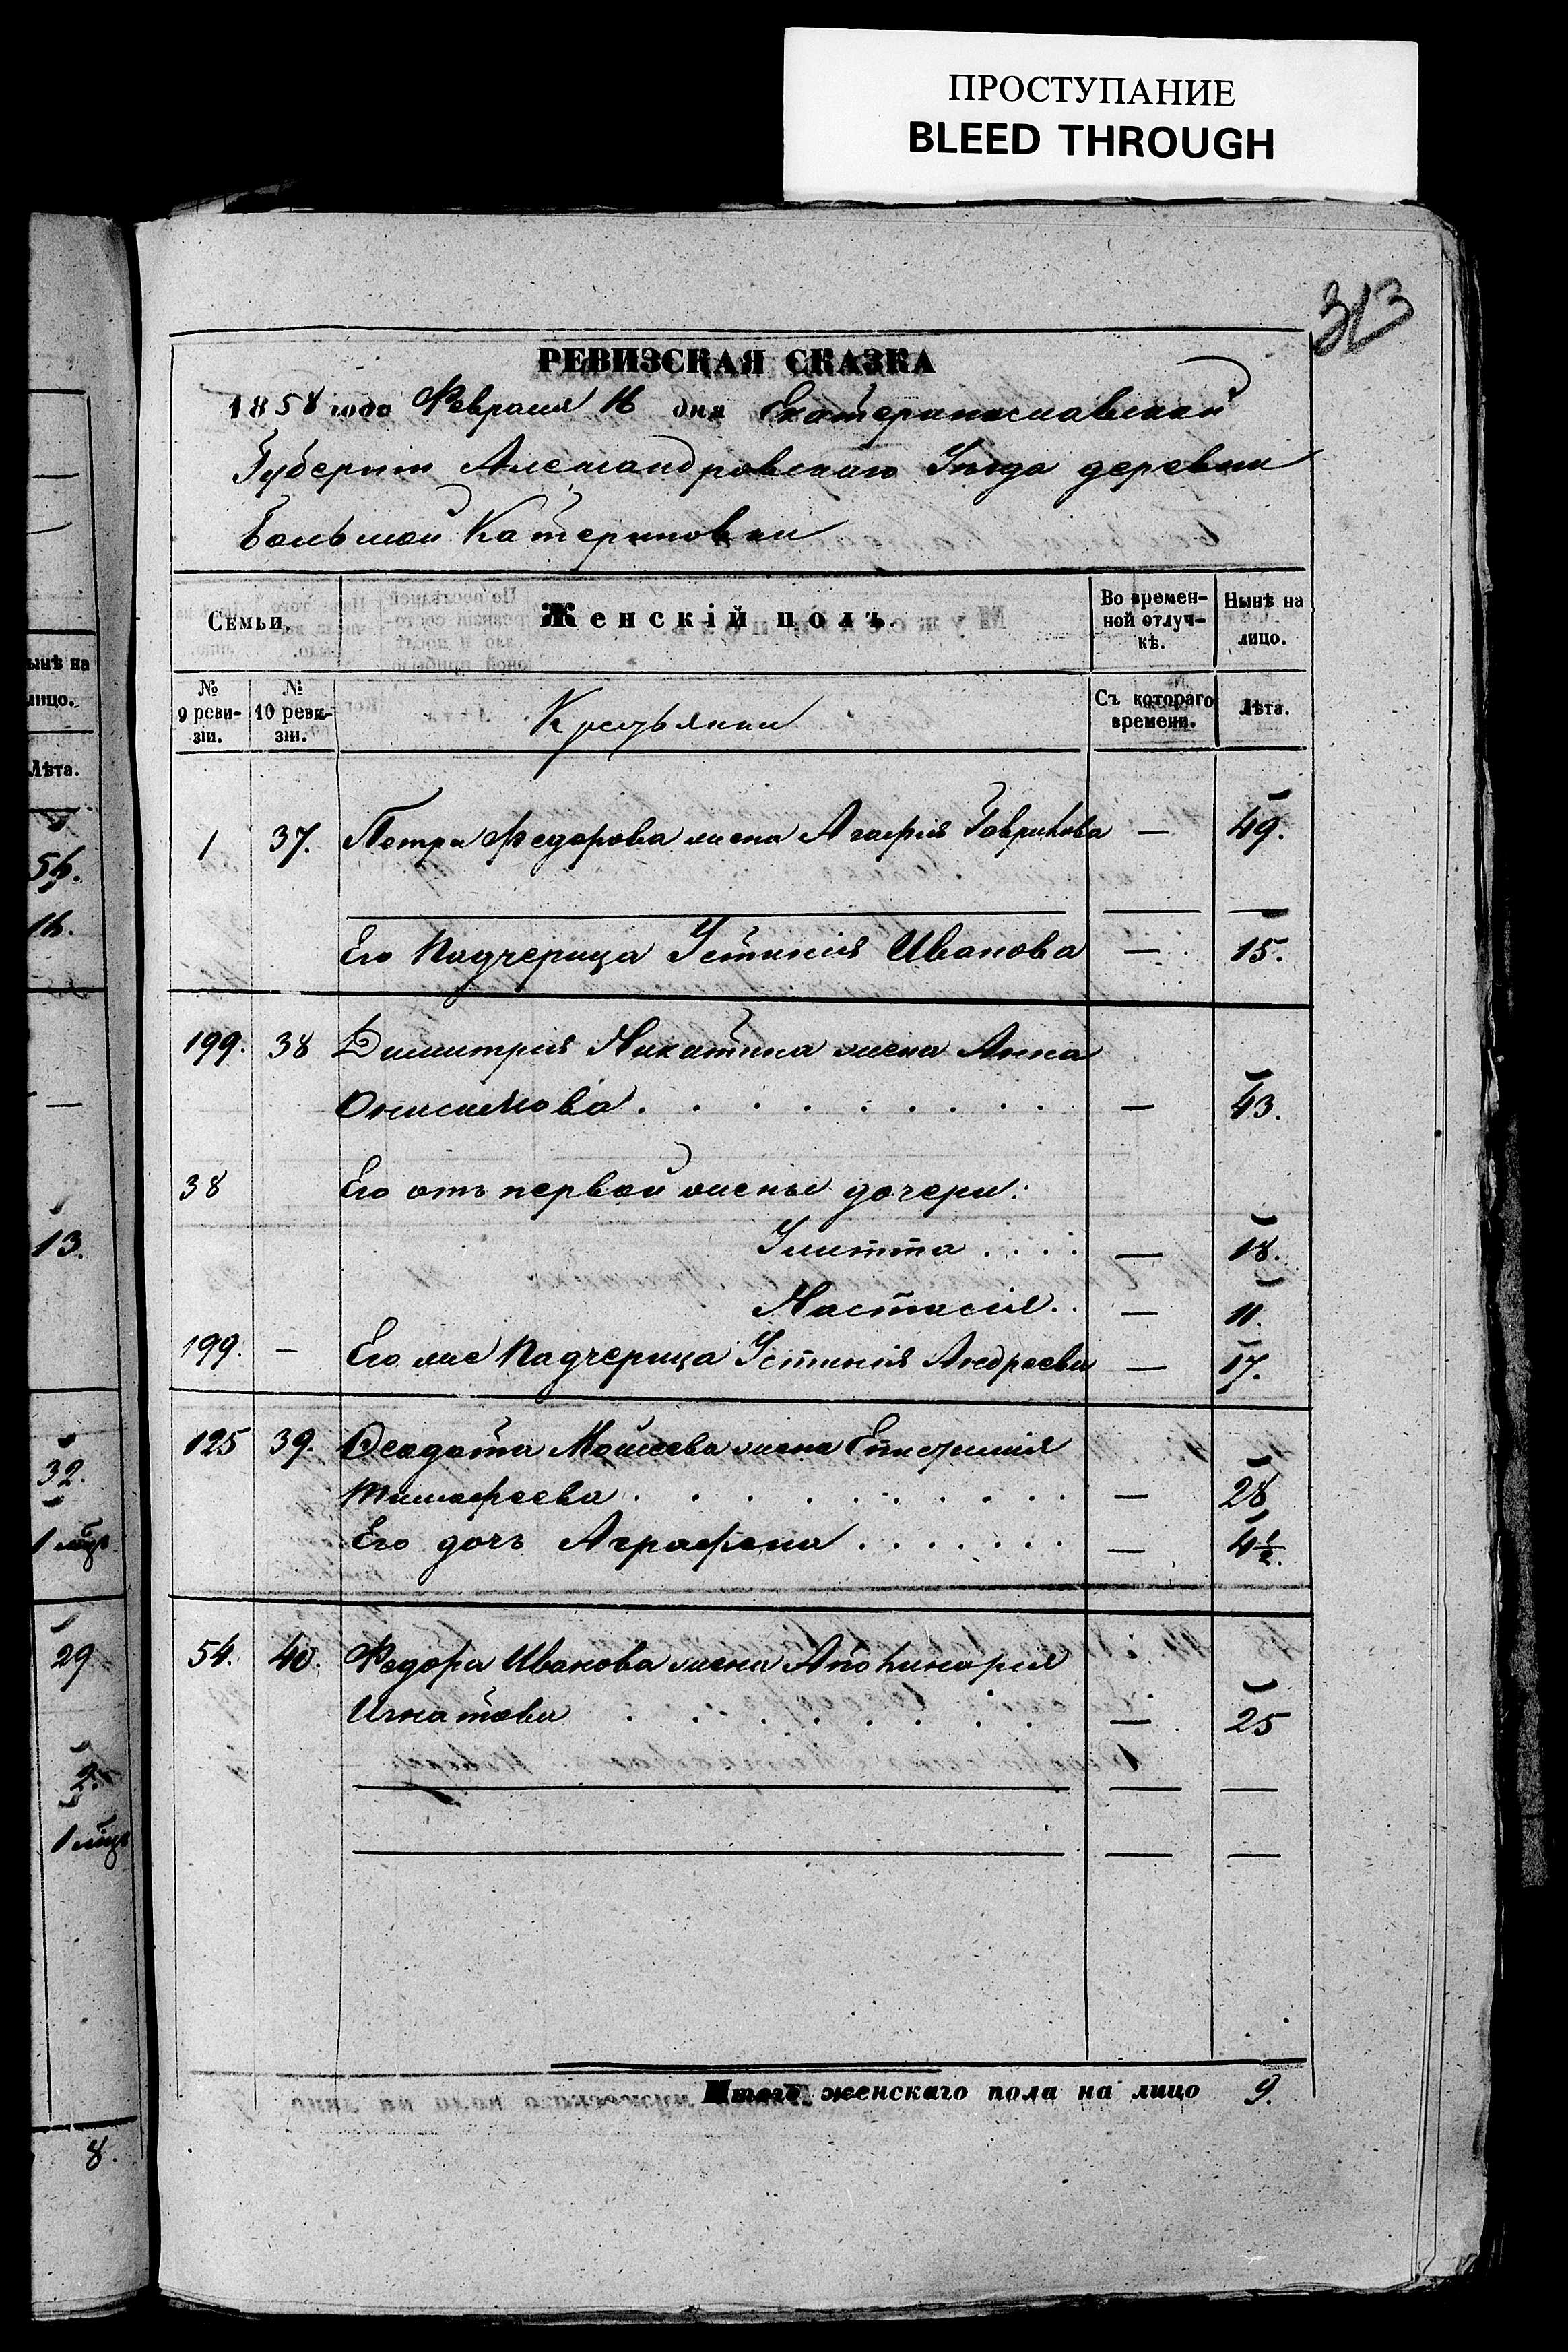 ПРОСТУПАНИЕ
BLEED THROUGH
313
РЕВИЗСКАЯ СКАЗКА
1858 года Февраля 16 дня Екатеринославской
Губерніи Александровскаго Уѣзда деревни
Большой Катериновки
Семьи. Женскій полъ. Во времен-
ной отлуч-
кѣ. Нынѣ на
лицо.
№
9 реви-
зіи. №
10 реви-
зіи. Крестьянки Съ котораго
времени. Лѣта.
1 37. Петра Федорова жена Агафія Гаврилова — 49.
Его Падчерица Устинія Иванова — 15.
199. 38 Димитрія Никитина жена Анна
Онисимова . . . . . . . . . — 43.
38 Его отъ первой жены дочери:
Улитта . . . . — 18.
Настасія . . — 11.
199. — Его же Падчерица Устинія Андреева — 17.
125 39. Ѳеодота Моисеева жена Епистимія
Тимофеева . . . . . . . . . — 28
Его дочь Аграфена . . . . . . . — 4½.
54. 40. Федора Иванова жена Аполинарія
Игнатова . . . . . . . . — 25
Итого женскаго пола на лицо 9.
ынѣ на
лицо.
Лѣта.
54.
16.
13.
32.
1 мѣц
29
2.
1 мѣц
8.